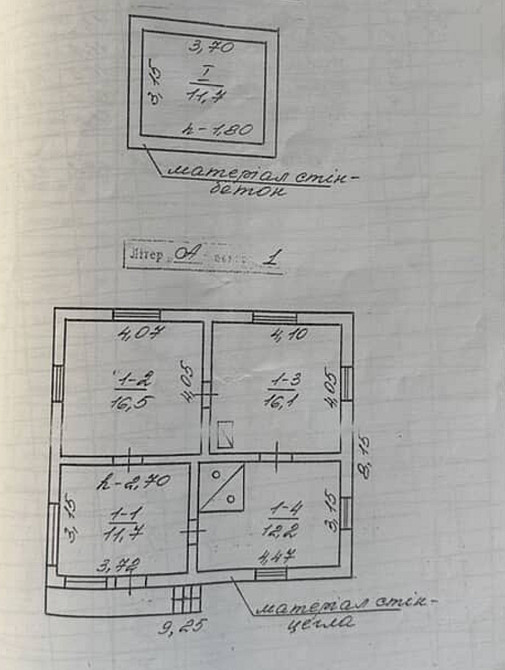 3,70
3,15
I
11,7
h-1,80
матеріал стін-
бетон
Літер А 1
4,07
4,10
1-2
16,5
4,05
1-3
16,1
4,05
8,15
h-2,70
1-1
11,7
3,15
3,72
1-4
12,2
3,15
4,47
матеріал стін-
цегла
9,25